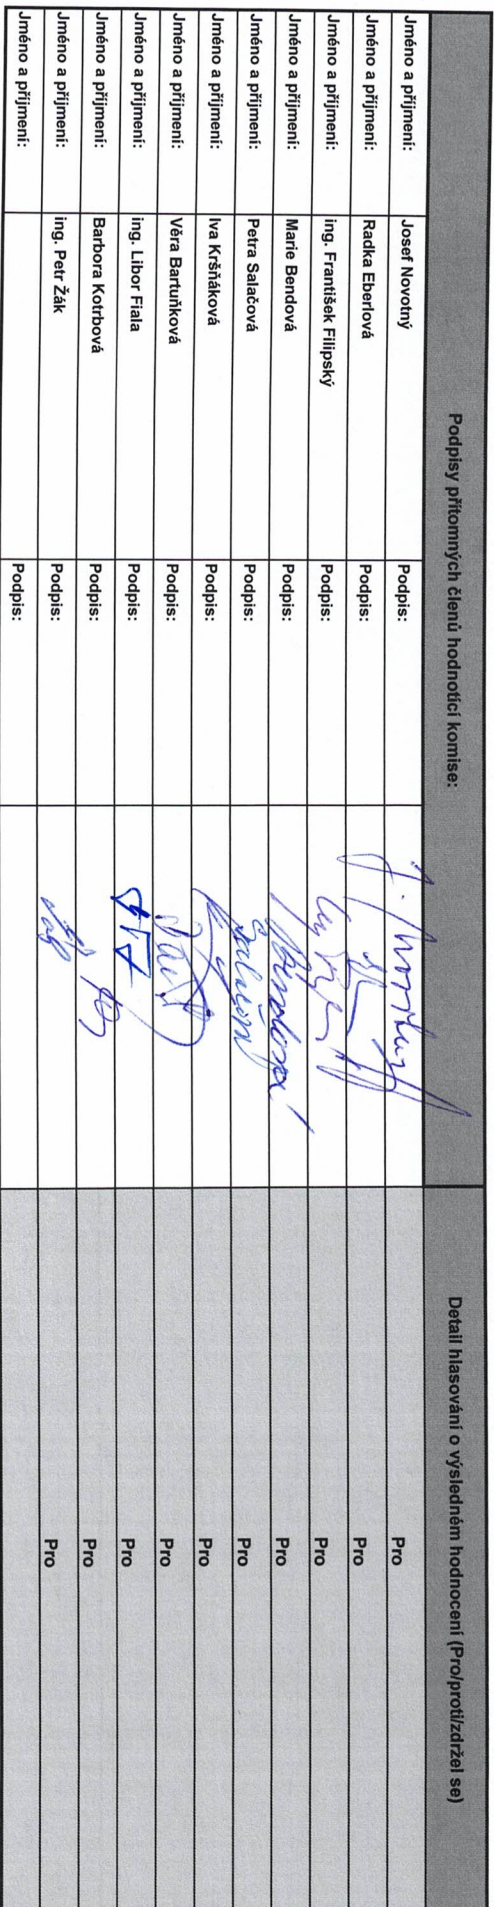 Podpisy přítomných členů hodnotící komise: Detail hlasování o výsledném hodnocení (Pro/proti/zdržel se)
Jméno a příjmení: Josef Novotný Podpis: Pro
Jméno a příjmení: Radka Eberlová Podpis: Pro
Jméno a příjmení: ing. František Filipský Podpis: Pro
Jméno a příjmení: Marie Bendová Podpis: Bendová Pro
Jméno a příjmení: Petra Salačová Podpis: Pro
Jméno a příjmení: Iva Kršňáková Podpis: Pro
Jméno a příjmení: Věra Bartuňková Podpis: Pro
Jméno a příjmení: ing. Libor Fiala Podpis: Pro
Jméno a příjmení: Barbora Kotrbová Podpis: Pro
Jméno a příjmení: ing. Petr Žák Podpis: Pro
Jméno a příjmení: Podpis: